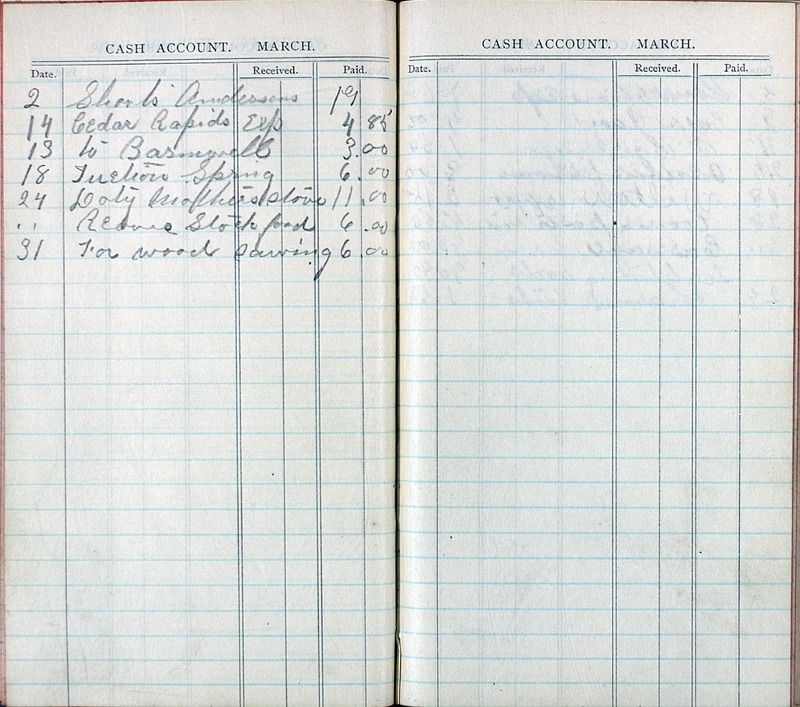 CASH ACCOUNT. MARCH.
Date. Received. Paid.
2 Shorts Andersons 19
14 Cedar Rapids Exp 4 85
13 to 3.00
18 Tuction Spring 6.00
24 Doty Mothers stove 11.00
" Stock food 6.00
31 For wood sawing 6.00
CASH ACCOUNT. MARCH.
Date. Received. Paid.